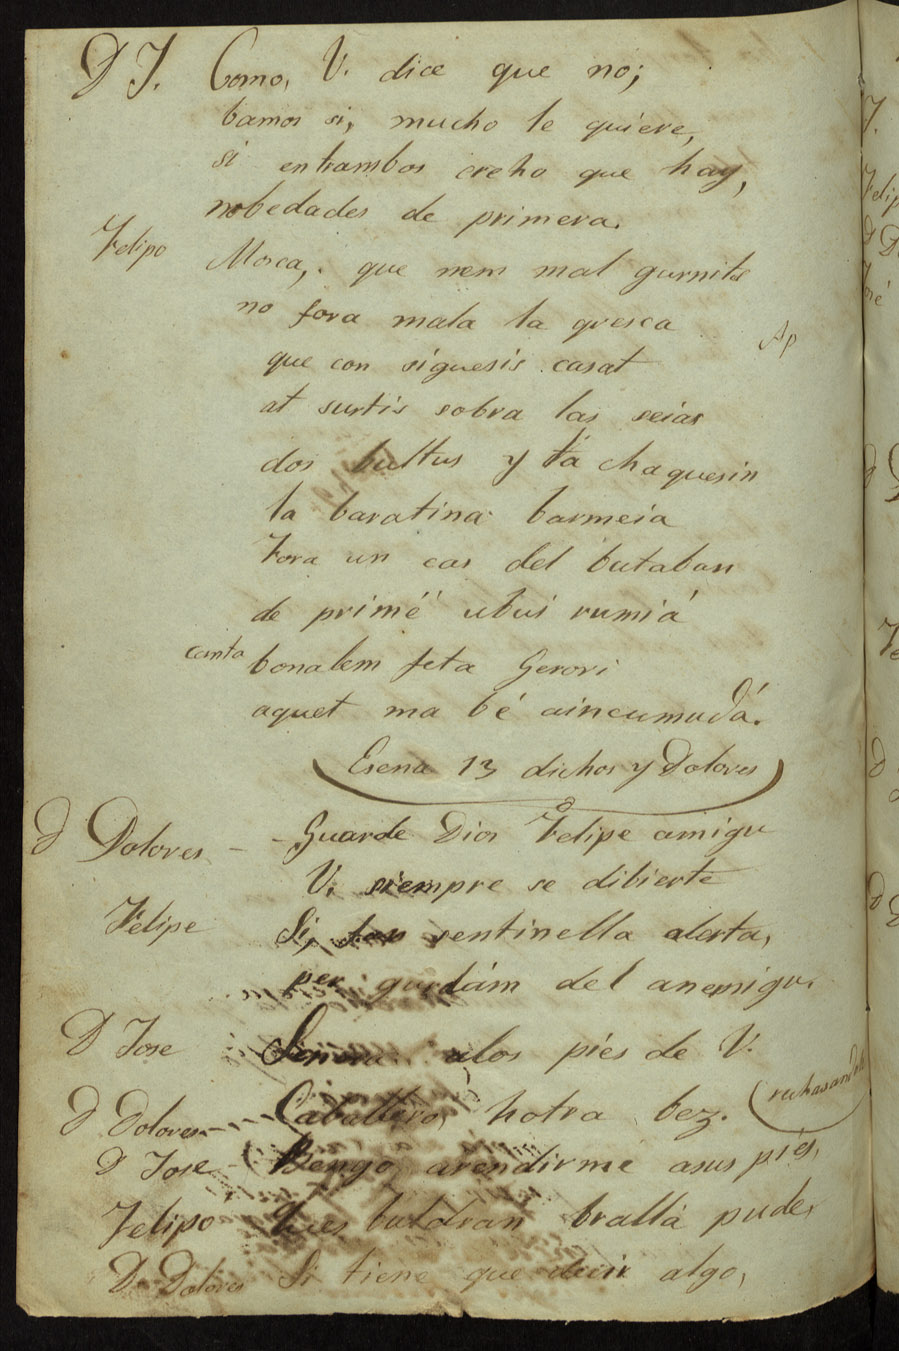 D J. Como, V. dice que no;
bamos si, mucho le quiere,
si entrambos creho que hay,
nobedades de primera.
Felipo Mosca, que nem mal gurnits
no fora mala la gresca Ap
que con siguesis casat
at surtis sobra las seias
dos bultus y la chaquesin
la baratina barmeia
Fora un cas del butaban
de primé ubui rumiá
canta bonalem feta Gerori
aquet ma bé aincumudá.
Esena 13 dichos y Dolores
D Dolores - - Guarde Dios Felipe amigu
V. siempre se dibierte
Felipe Si, sentinella alerta,
per gurdám del anemigu.
D Jose Sinora alos piés de V.
D Dolores Caballero, hotra bez. (rechasandole
D Jose - Bengo arendirme asus piés,
Felipo butdran brallá pude,
D Dolores Si tiene que decir algo,